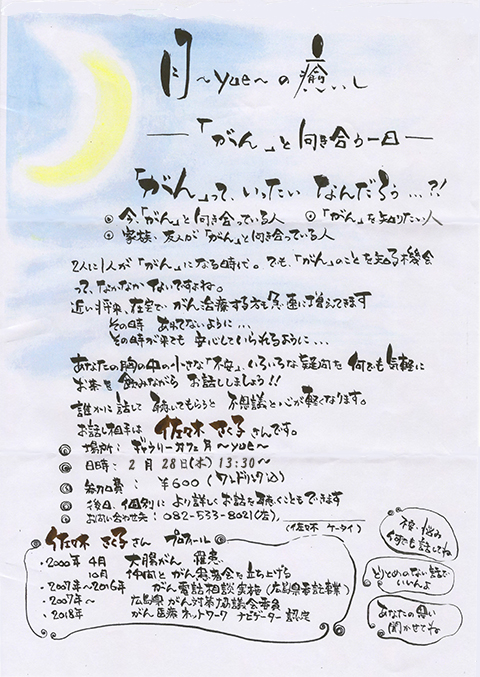 月〜yue〜の癒し
―「がん」と向き合う一日―
「がん」って、いったい なんだろう…?!
◎今、「がん」と向き合っている人 ◎「がん」を知りたい人
◎家族、友人が「がん」と向き合っている人
2人に1人が「がん」になる時代。でも、「がん」のことを知る機会
って、なかなかないですよね。
近い将来、在宅でがん治療する方も急速に増えてきます
その時 あわてないように…
その時が来ても 安心していられるように…
あなたの胸の中の小さな「不安」、いろいろな疑問を 何でも気軽に
お茶を飲みながら お話ししましょう!!
誰かに話して 聴いてもらうと 不思議と心が軽くなります。
お話し相手は 佐々木 さく子さんです。
◎場所: ギャラリーカフェ月〜yue〜
◎日時: 2月28日(木)13:30〜
◎参加費: ¥600(ワンドリンク込)
◎後日、個別に より詳しくお話を聴くこともできます
◎お問い合わせ先: 082-533-8021(店)、
(佐々木 ケータイ)
佐々木 さく子さん プロフィール
・2000年 4月 大腸がん 罹患
10月 仲間と がん患者会を立ち上げる
・2007年〜2016年 がん電話相談実施(広島県委託事業)
・2007年〜 広島県がん対策協議会委員
・2018年 がん医療ネットワーク ナビゲーター認定
不安・悩み
何でも話してね
とりとめのない話で
いいんよ
あなたの思い
聞かせてね